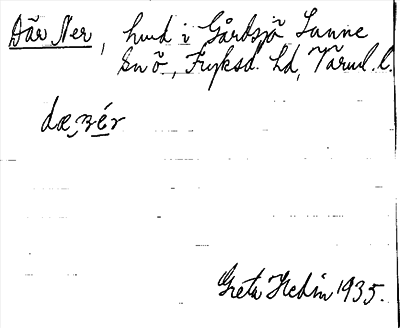 Där Ner, hmd i Gårdsjö Sunne
sn ö., Fryksd. hd, Värml. l.
dæ, nér
Greta Hedin 1935.